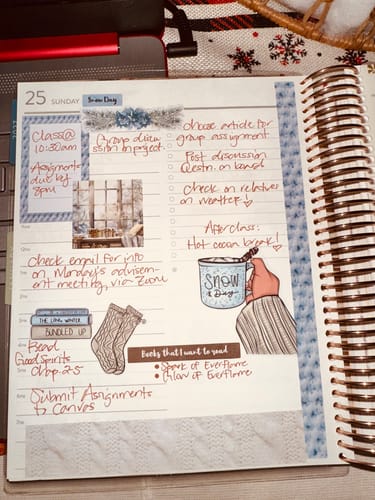 25 SUNDAY
Snow Day
Class@
10:30am
Assignments
due by
8pm
Group discu
ssion on project.
choose article for
group assignment
Post discussion
Qestn. on board
Check on relatives
on weather.
After class:
Hot cocoa break!
12pm
1pm
Check email for info
on, Monday's advisem-
ent meeting, via Zoom
2pm
3pm
THE LONG WINTER
BUNDLED UP
4pm
Read
Good Spirits
5pm
Chap. 2-5
6pm
Submit Assignments
to Canvas
7pm
SNOW
Day
Books that I want to read
Spark of Everflame
Glow of Everflame